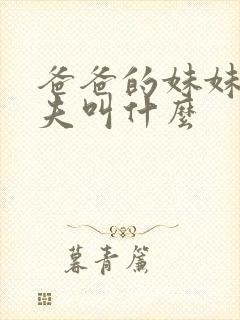 爸爸的妹妹
夫叫什麼
暮青簾